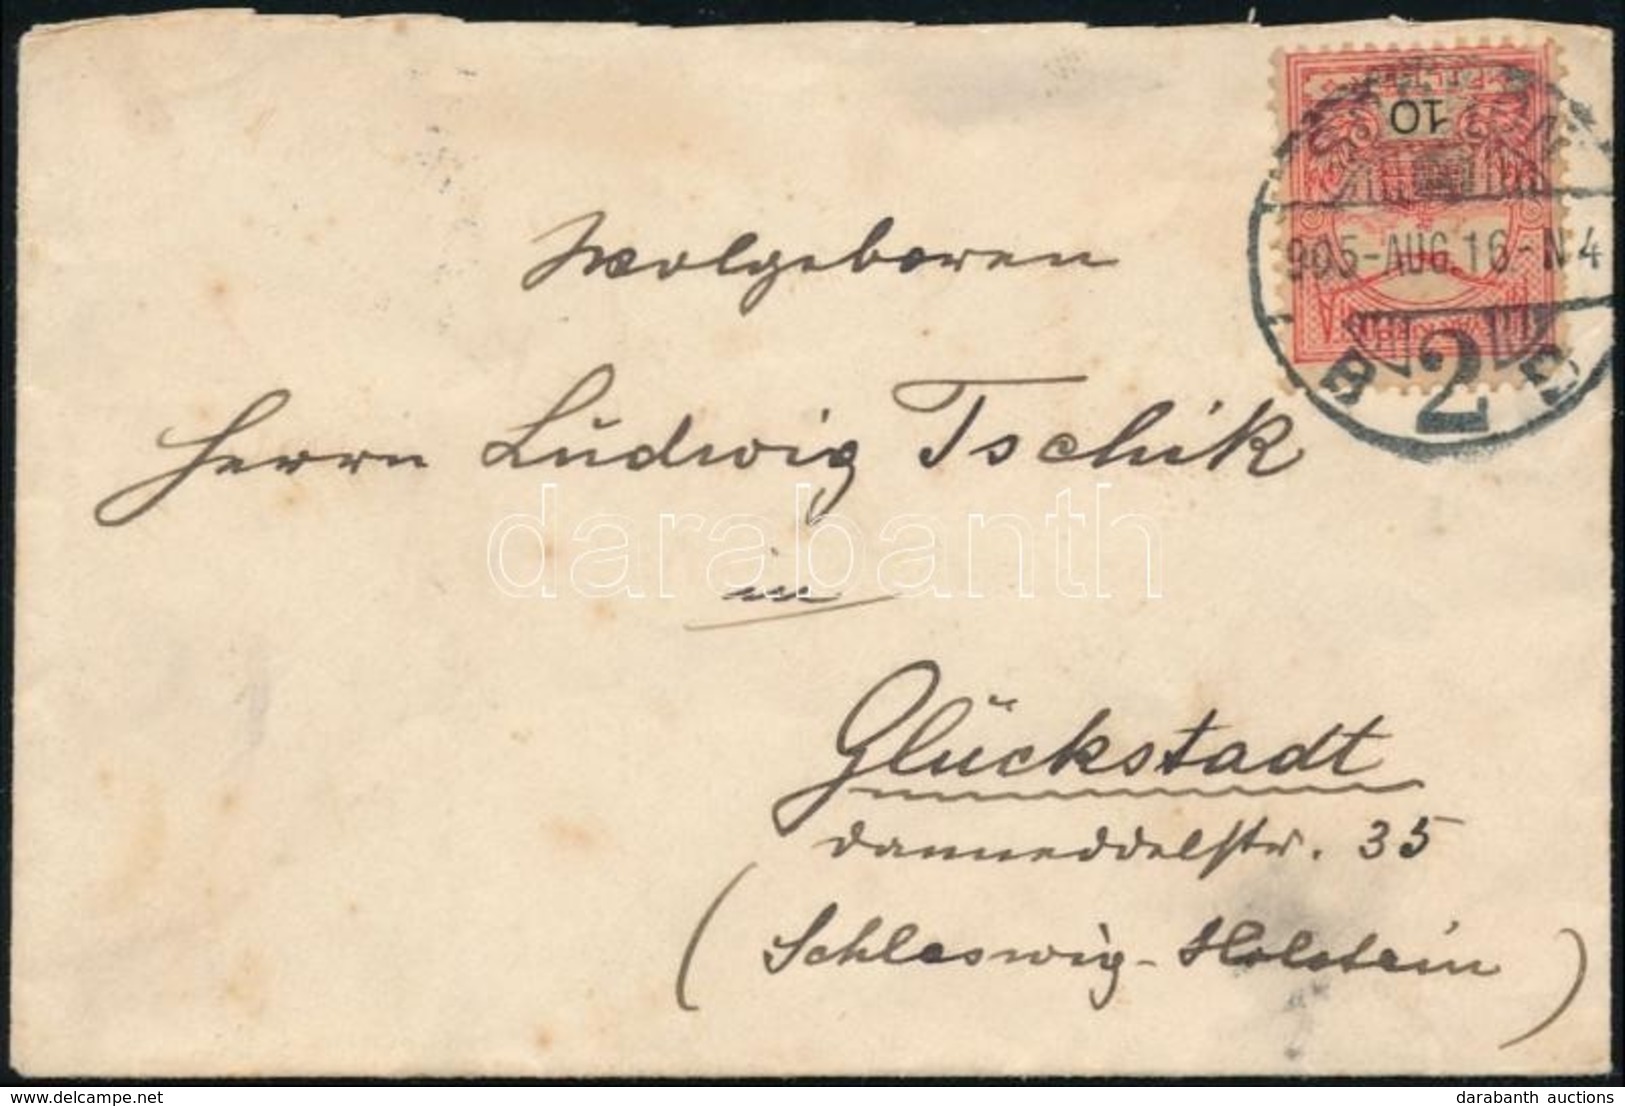 10
905-AUG 16-N4
B 2 B
Wolgeboren
Herrn Ludwig Tschik
in
Glückstadt
Danneddelstr. 35
(Schleswig-Holstein)
darabanth
delcampe.net
darabanth auctions